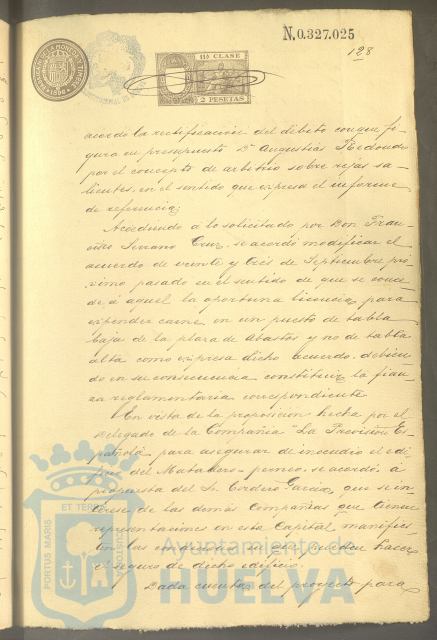 N.0.327.025
128
11ª CLASE
2 PESETAS
acordó la rectificacion del débito conque fi-
gura en presupuesto Dª Angustias Redondo
por el concepto de arbitrio sobre rejas sa-
lientes, en el sentido que expresa el informe
de referencia.
Accediendo á lo solicitado por Don Fran-
cisco Serrano Cruz, se acordó modificar el
acuerdo de veinte y tres de Septiembre pró-
ximo pasado en el sentido de que se conce-
de á aquel la oportuna licencia para
expender carne en un puesto de tabla
baja de la plaza de Abastos y no de tabla
alta como expresa dicho acuerdo, debien-
do en su consecuencia constituir la fian-
za reglamentaria correspondiente.
En vista de la proposicion hecha por el
Delegado de la Compañia "La Prevision Es-
pañola" para asegurar de incendio el edi-
ficio del Matadero público, se acordó, á
propuesta del Sr. Cordero Garcia, que se in-
terese de las demás Compañias que tienen
representaciones en esta Capital, manifies-
ten las condiciones en que pueden hacer
el seguro de dicho edificio.
Dada cuenta del proyecto para
PORTUS MARIS ET TERRAE CUSTODIA
Ayuntamiento de
HUELVA